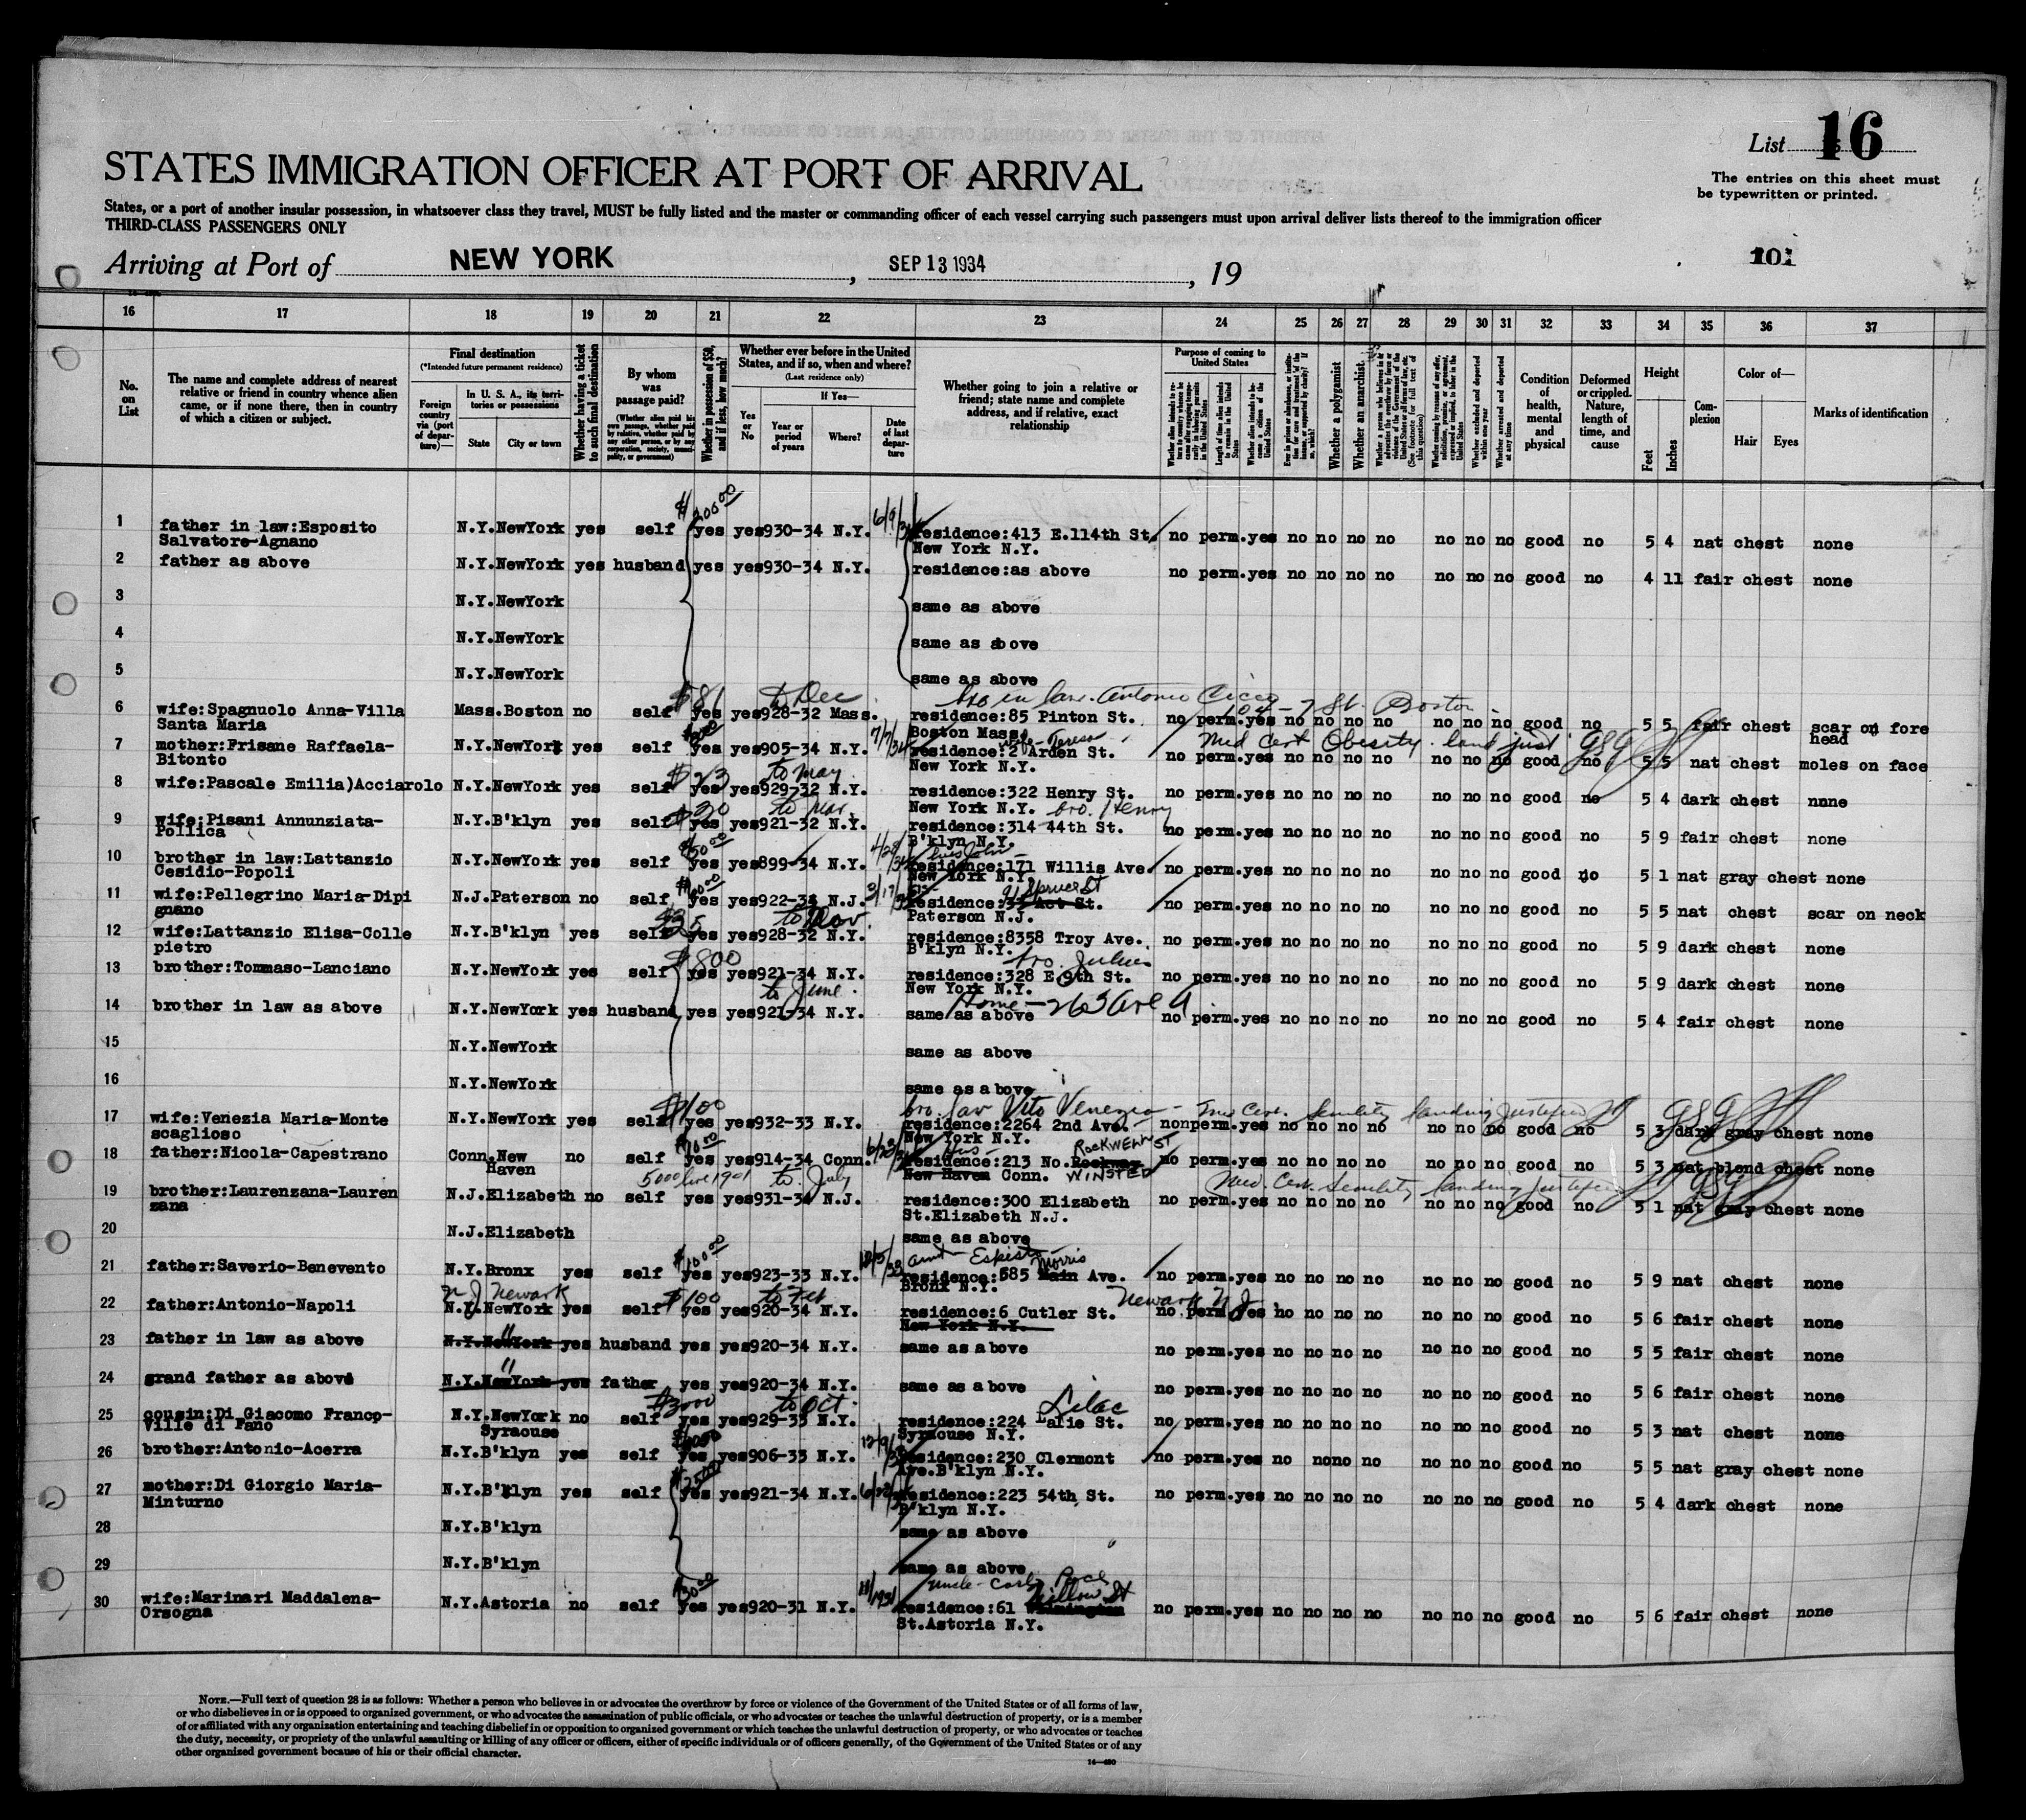 List 16
STATES IMMIGRATION OFFICER AT PORT OF ARRIVAL
The entries on this sheet must
be typewritten or printed.
States, or a port of another insular possession, in whatsoever class they travel, MUST be fully listed and the master or commanding officer of each vessel carrying such passengers must upon arrival deliver lists thereof to the immigration officer
THIRD-CLASS PASSENGERS ONLY
Arriving at Port of NEW YORK, SEP 13 1934, 19
101
16 17 18 19 20 21 22 23 24 25 26 27 28 29 30 31 32 33 34 35 36 37
No. on List
The name and complete address of nearest relative or friend in country whence alien came, or if none there, then in country of which a citizen or subject.
Final destination
(*Intended future permanent residence)
Foreign country via (port of departure)—
In U. S. A., its territories or possessions
State
City or town
Whether having a ticket to such final destination
By whom was passage paid?
(Whether alien paid his own passage, whether paid by relative, whether paid by any other person, or by any corporation, society, municipality, or government)
Whether in possession of $50, and if less, how much?
Whether ever before in the United States, and if so, when and where?
(Last residence only)
Yes or No
If Yes—
Year or period of years
Where?
Date of last departure
Whether going to join a relative or friend; state name and complete address, and if relative, exact relationship
Purpose of coming to United States
Whether a polygamist
Whether an anarchist
Condition of health, mental and physical
Deformed or crippled. Nature, length of time, and cause
Height
Feet
Inches
Complexion
Color of—
Hair
Eyes
Marks of identification
1 father in law:Esposito N.Y.NewYork yes self yes yes930-34 N.Y. 6/9/34 residence:413 E.114th St. no perm.yes no no no no no no no good no 5 4 nat chest none
Salvatore-Agnano New York N.Y.
2 father as above N.Y.NewYork yes husband yes yes930-34 N.Y. residence:as above no perm.yes no no no no no no no good no 4 11 fair chest none
3 N.Y.NewYork same as above
4 N.Y.NewYork same as above
5 N.Y.NewYork same as above
$81 to Dec bro in law. Antonio Cicco
6 wife:Spagnuolo Anna-Villa Mass.Boston no self yes yes928-32 Mass. residence:85 Pinton St. no perm.yes no no no no no no no good no 5 5 fair chest scar on fore
Santa Maria Boston Mass. head
7 mother:Frisane Raffaela- N.Y.NewYork yes self yes yes905-34 N.Y. 7/7/34 residence:2 Arden St. Med Cert Obesity no perm.yes no no no no no no no good no 5 5 nat chest moles on face
Bitonto New York N.Y.
$23 to May
8 wife:Pascale Emilia)Acciarolo N.Y.NewYork yes self yes yes929-32 N.Y. residence:322 Henry St. no perm.yes no no no no no no no good no 5 4 dark chest none
New York N.Y. bro. Henry
9 wife:Pisani Annunziata- N.Y.B'klyn yes self yes yes921-32 N.Y. residence:314 44th St. no perm.yes no no no no no no no good no 5 9 fair chest none
Pollica B'klyn N.Y.
10 brother in law:Lattanzio N.Y.NewYork yes self yes yes899-34 N.Y. 4/28/34 residence:171 Willis Ave. no perm.yes no no no no no no no good no 5 1 nat gray chest none
Cesidio-Popoli New York N.Y.
91 Spruce St
11 wife:Pellegrino Maria-Dipi N.J.Paterson no self yes yes922-34 N.J. residence: St. no perm.yes no no no no no no no good no 5 5 nat chest scar on neck
gnano Paterson N.J.
to Nov.
12 wife:Lattanzio Elisa-Colle N.Y.B'klyn yes self yes yes928-32 N.Y. residence:8358 Troy Ave. no perm.yes no no no no no no no good no 5 9 dark chest none
pietro B'klyn N.Y.
$800 bro. Julius
13 brother:Tommaso-Lanciano N.Y.NewYork yes self yes yes921-34 N.Y. residence:328 E 9th St. no perm.yes no no no no no no no good no 5 9 dark chest none
to June New York N.Y.
Home - 263 Ave A.
14 brother in law as above N.Y.NewYork yes husband yes yes921-34 N.Y. same as above no perm.yes no no no no no no no good no 5 4 fair chest none
15 N.Y.NewYork same as above
16 N.Y.NewYork same as above
$100 bro. law Vito Venezia - Med Cert. Senility landing justified
17 wife:Venezia Maria-Monte N.Y.NewYork yes self yes yes932-33 N.Y. residence:2264 2nd Ave. nonperm.yes no no no no no no no good no 5 3 dark gray chest none
scaglioso New York N.Y.
ROCKWELL ST
18 father:Nicola-Capestrano Conn.New Haven no self yes yes914-34 Conn. residence:213 No. no perm.yes no no no no no no no good no 5 3 nat blond chest none
New Haven Conn. WINSTED
to July Med. Cert. Senility landing justified
19 brother:Laurenzana-Lauren N.J.Elizabeth no self yes yes931-34 N.J. residence:300 Elizabeth no perm.yes no no no no no no no good no 5 1 nat gray chest none
zana St.Elizabeth N.J.
20 N.J.Elizabeth same as above
Morris
21 father:Saverio-Benevento N.Y.Bronx yes self yes yes923-33 N.Y. residence:585 Main Ave. no perm.yes no no no no no no no good no 5 9 nat chest none
Bronx N.Y.
N J Newark $100 to Feb Newark N J.
22 father:Antonio-Napoli N.Y.NewYork yes self yes yes920-34 N.Y. residence:6 Cutler St. no perm.yes no no no no no no no good no 5 6 fair chest none
New York N.Y.
23 father in law as above N.Y.NewYork yes husband yes yes920-34 N.Y. same as above no perm.yes no no no no no no no good no 5 5 fair chest none
24 grand father as above N.Y.NewYork yes father yes yes920-34 N.Y. same as above no perm.yes no no no no no no no good no 5 6 fair chest none
$3000 to Oct. Lilac
25 cousin:Di Giacomo Franco- N.Y.NewYork no self yes yes929-33 N.Y. residence:224 Lalie St. no perm.yes no no no no no no no good no 5 3 nat chest none
Ville di Fano Syracuse Syracuse N.Y.
26 brother:Antonio-Acerra N.Y.B'klyn yes self yes yes906-33 N.Y. residence:230 Clermont no perm.yes no nono no no no no good no 5 5 nat gray chest none
Ave.B'klyn N.Y.
27 mother:Di Giorgio Maria- N.Y.B'klyn yes self yes yes921-34 N.Y. residence:223 54th St. no perm.yes no no no no no no no good no 5 4 dark chest none
Minturno B'klyn N.Y.
28 N.Y.B'klyn same as above
29 N.Y.B'klyn same as above
uncle - Carlo Pace
Willow St
30 wife:Marinari Maddalena- N.Y.Astoria no self yes yes920-31 N.Y. 11/1931 residence:61 no perm.yes no no no no no no no good no 5 6 fair chest none
Orsogna St.Astoria N.Y.
NOTE.—Full text of question 28 is as follows: Whether a person who believes in or advocates the overthrow by force or violence of the Government of the United States or of all forms of law,
or who disbelieves in or is opposed to organized government, or who advocates the assassination of public officials, or who advocates or teaches the unlawful destruction of property, or is a member
of or affiliated with any organization entertaining and teaching disbelief in or opposition to organized government or which teaches the unlawful destruction of property, or who advocates or teaches
the duty, necessity, or propriety of the unlawful assaulting or killing of any officer or officers, either of specific individuals or of officers generally, of the Government of the United States or of any
other organized government because of his or their official character.